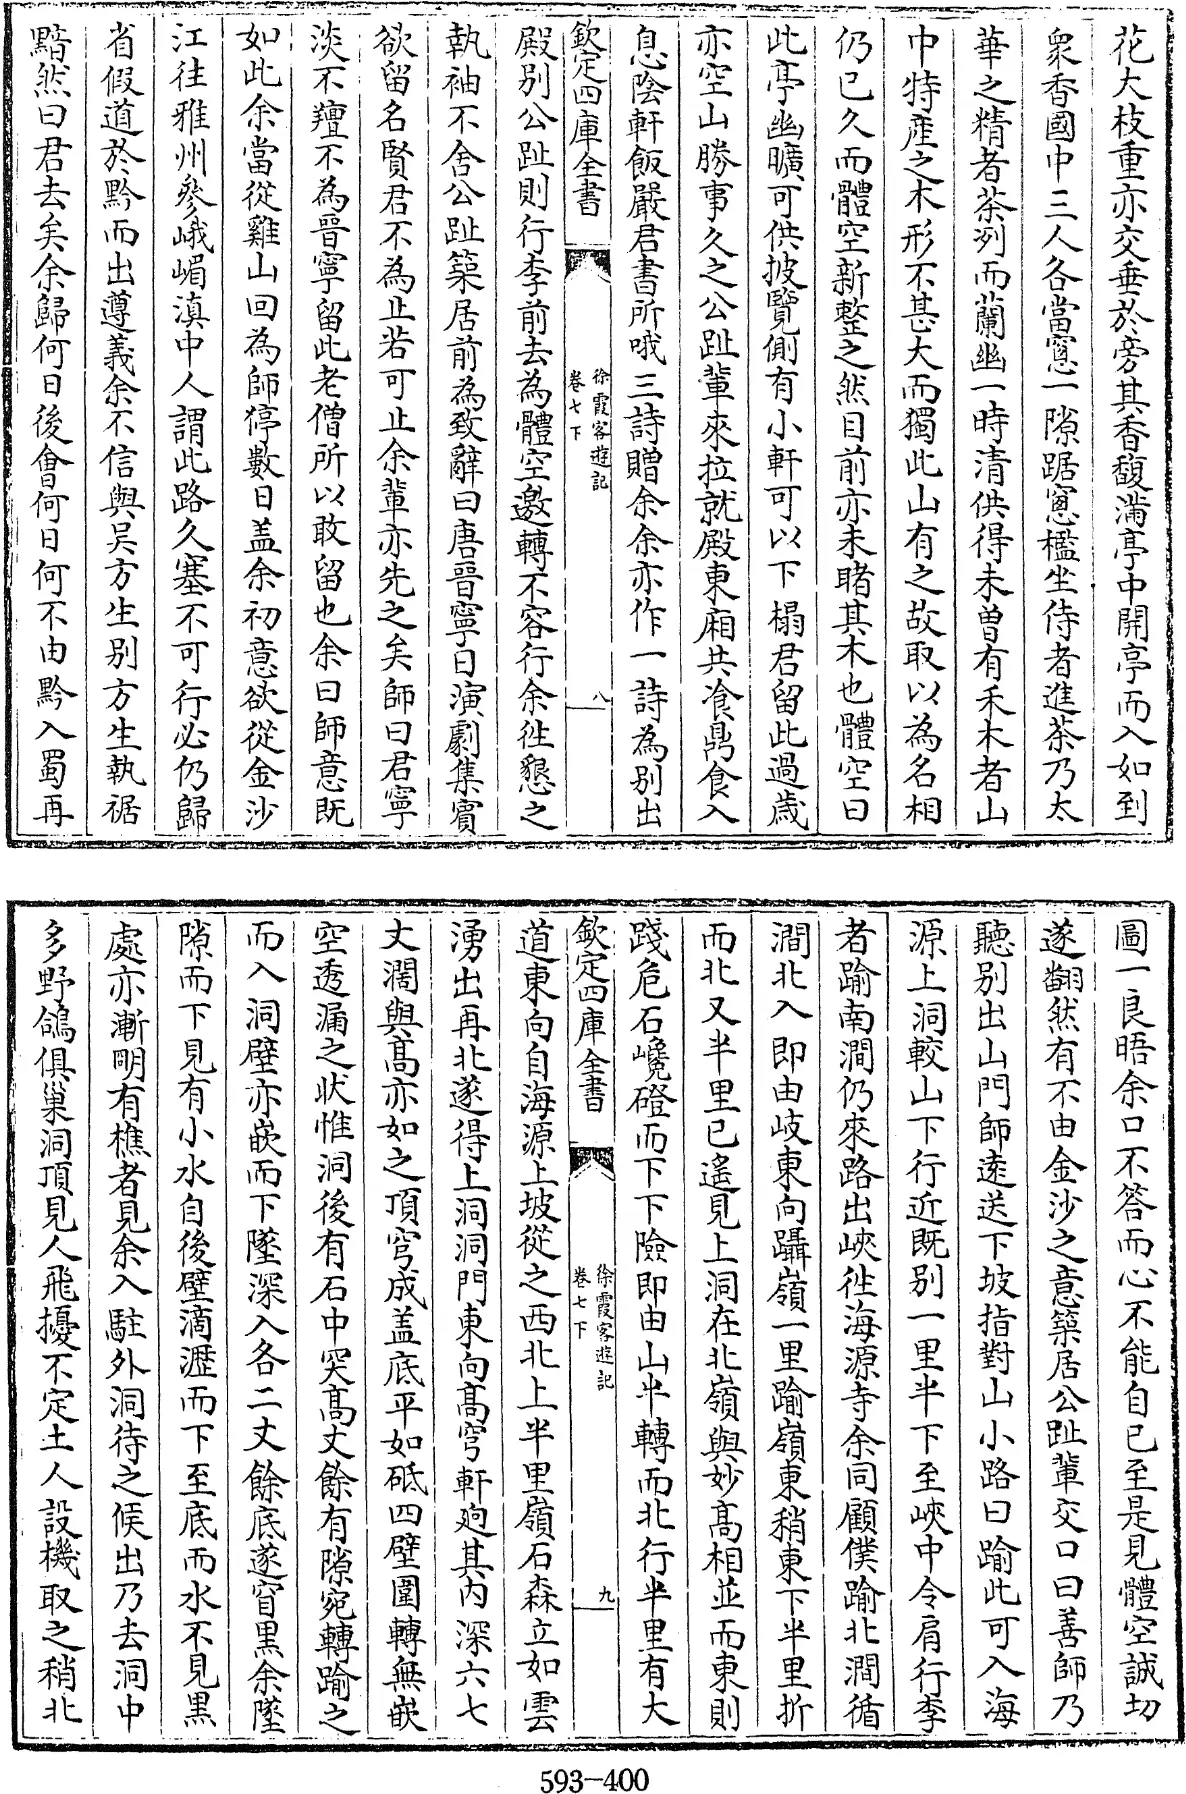 花大枝重亦交垂於旁其香馥滿亭中開亭而入如到
衆香國中三人各當窻一隙踞窻檻坐侍者進茶乃太
華之精者茶冽而蘭幽一時清供得未曽有禾木者山
中特産之木形不甚大而獨此山有之故取以為名相
仍已久而體空新整之然目前亦未睹其木也體空曰
此亭幽曠可供披覽側有小軒可以下榻君留此過歲
亦空山勝事久之公趾輩來拉就殿東廂共飡鼎食入
息陰軒飯嚴君書所哦三詩贈余余亦作一詩為别出
欽定四庫全書
徐霞客遊記
卷七下
八
殿别公趾則行李前去為體空邀轉不容行余徃懇之
執袖不舍公趾築居前為致辭曰唐晉寧日演劇集賓
欲留名賢君不為止若可止余輩亦先之矣師曰君寧
淡不羶不為晉寧留此老僧所以敢留也余曰師意既
如此余當從雞山回為師停數日盖余初意欲從金沙
江往雅州參峨嵋滇中人謂此路久塞不可行必仍歸
省假道於黔而出遵義余不信與吳方生别方生執裾
黯然曰君去矣余歸何日後會何日何不由黔入蜀再
圖一良晤余口不答而心不能自已至是見體空誠切
遂翻然有不由金沙之意築居公趾輩交口曰善師乃
聽别出山門師遠送下坡指對山小路曰踰此可入海
源上洞較山下行近既别一里半下至峽中令肩行李
者踰南澗仍來路出峽徃海源寺余同顧僕踰北澗循
澗北入即由岐東向躡嶺一里踰嶺東稍東下半里折
而北又半里已遙見上洞在北嶺與妙高相並而東則
踐危石巉磴而下下險即由山半轉而北行半里有大
欽定四庫全書
徐霞客遊記
卷七下
九
道東向自海源上坡從之西北上半里嶺石森立如雲
湧出再北遂得上洞洞門東向高穹軒逈其内深六七
丈濶與高亦如之頂穹成盖底平如砥四壁圍轉無嵌
空透漏之状惟洞後有石中突高丈餘有隙宛轉踰之
而入洞壁亦嵌而下墜深入各二丈餘底遂窅黒余墜
隙而下見有小水自後壁滴瀝而下至底而水不見黒
處亦漸明有樵者見余入駐外洞待之候出乃去洞中
多野鴿俱巢洞頂見人飛擾不定土人設機取之稍北
593-400